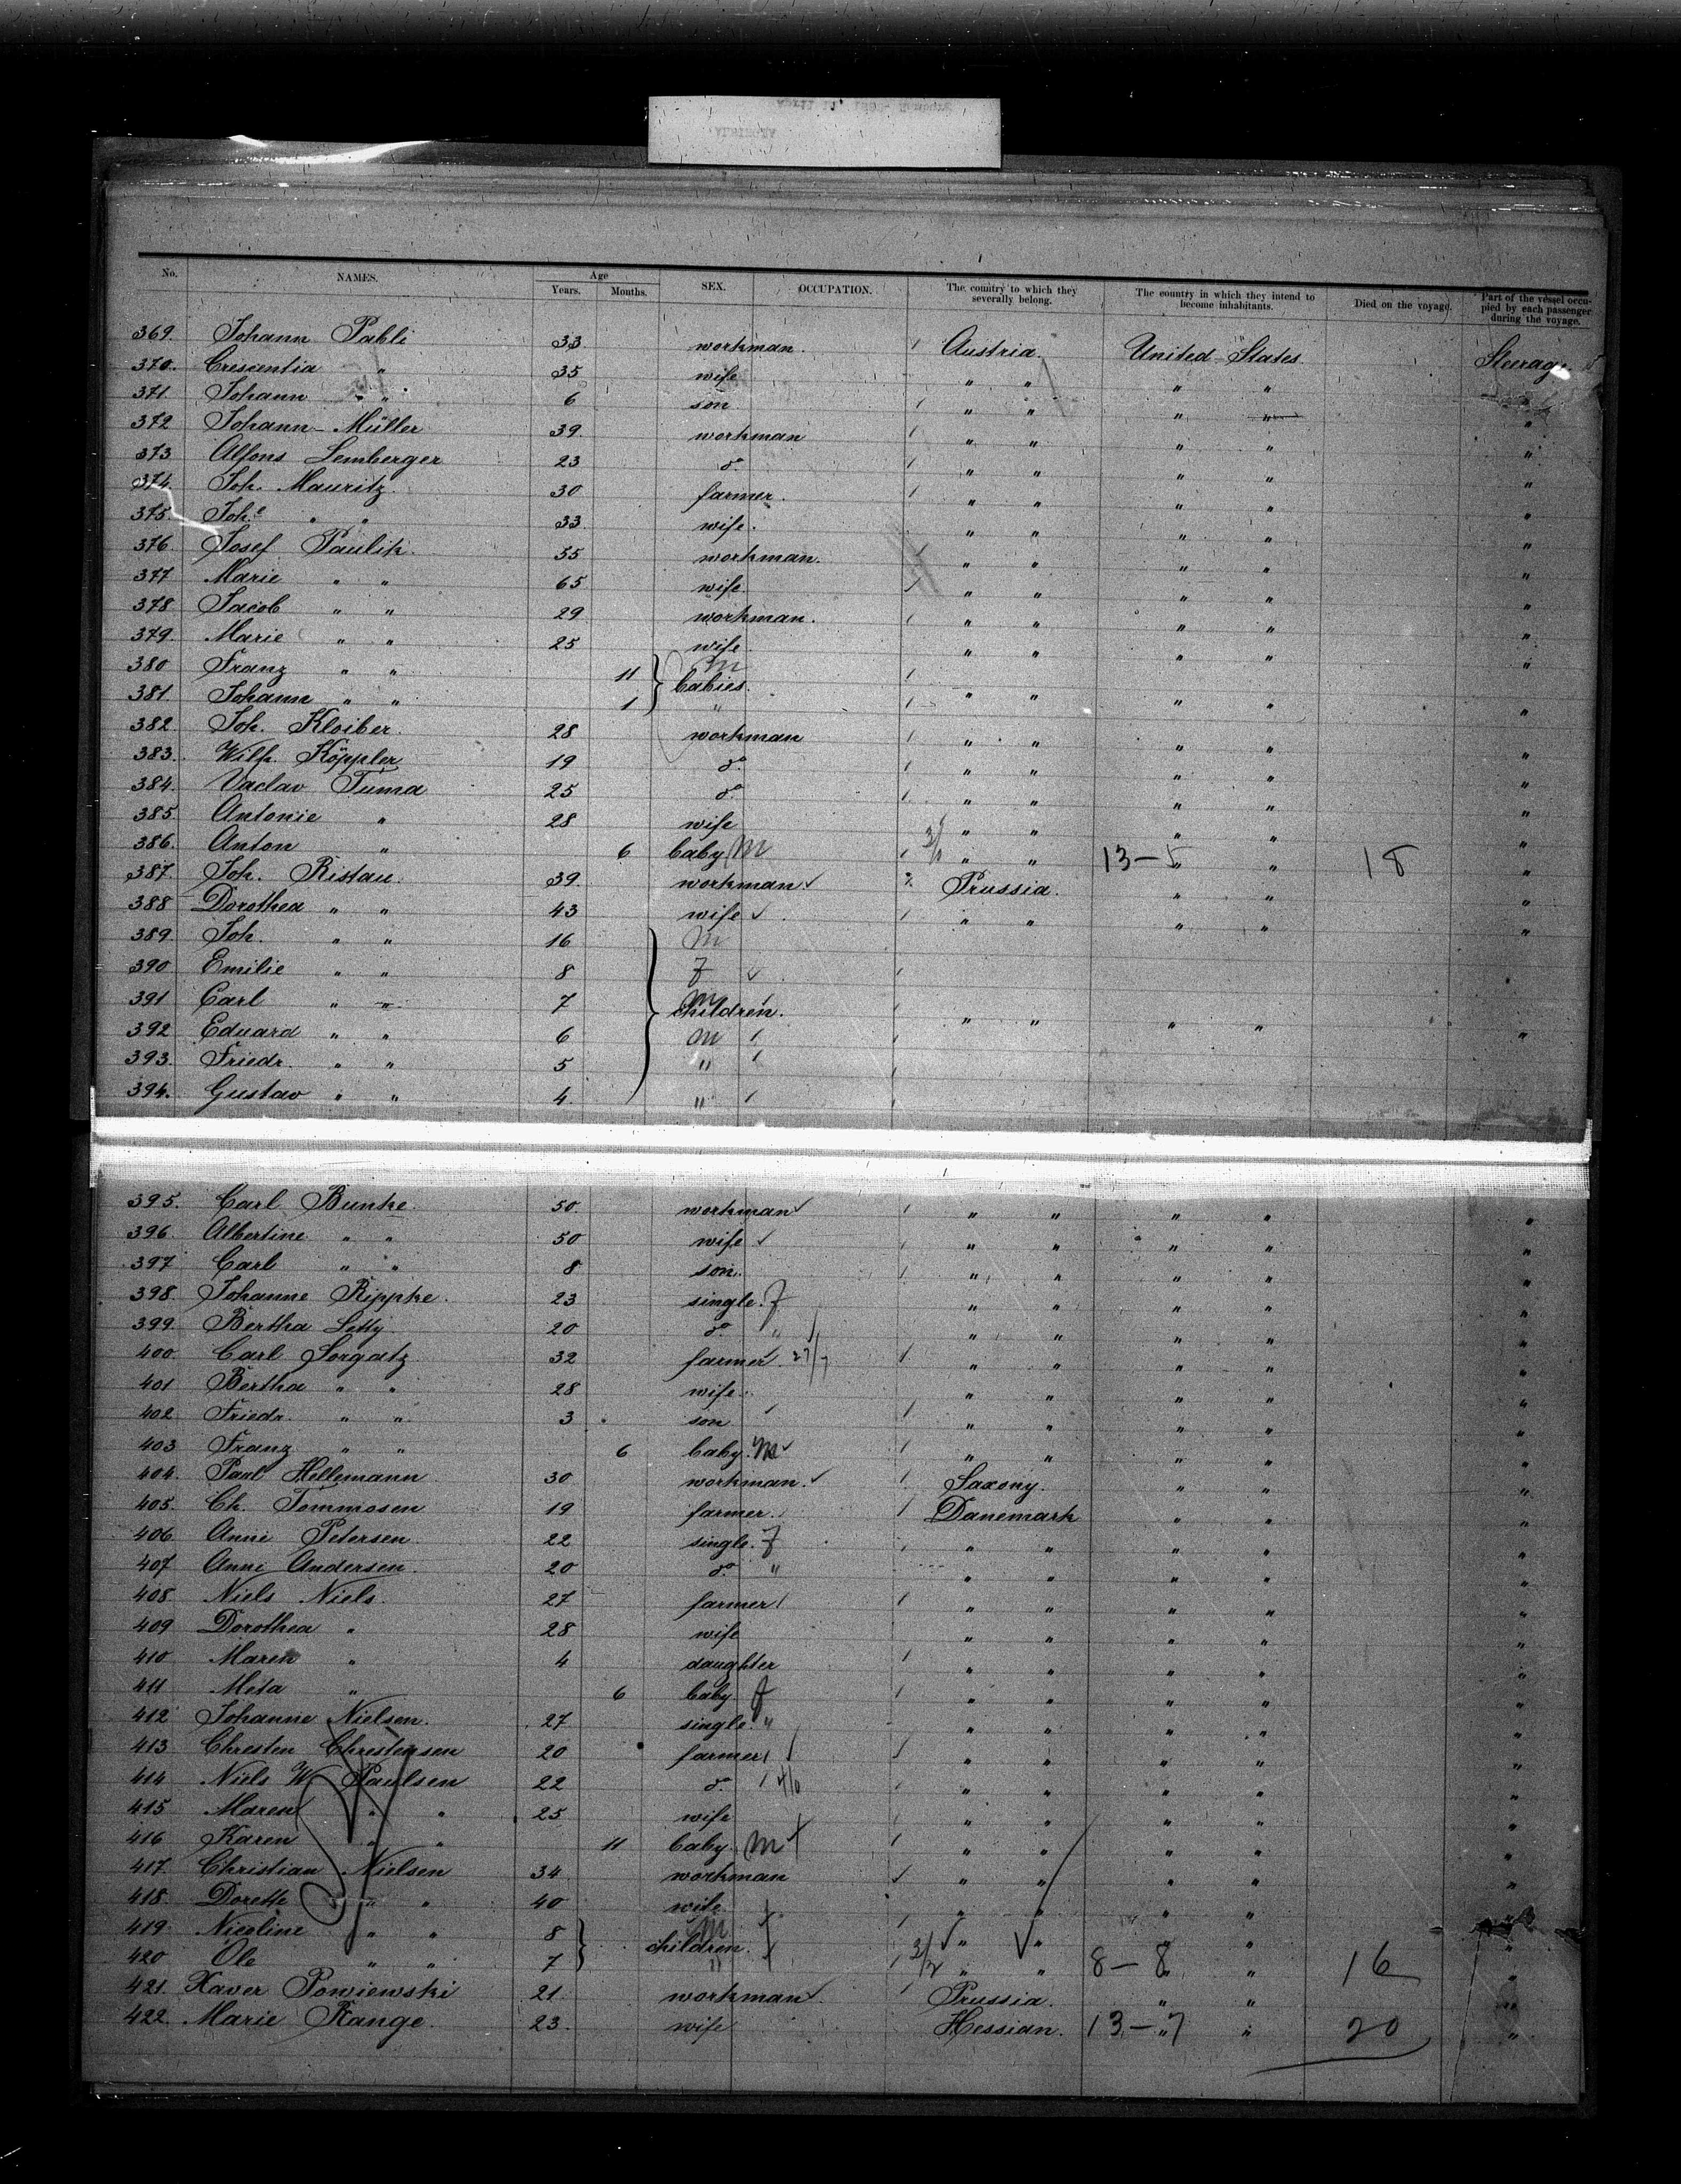 No. NAMES. Age Years. Months. SEX. OCCUPATION. The country to which they severally belong. The country in which they intend to become inhabitants. Died on the voyage. Part of the vessel occupied by each passenger during the voyage.
369. Johann Pabli 33 workman. Austria. United States Steerage
370. Crescentia " 35 wife " " " "
371. Johann " " 6 son " " " " "
372 Johann Müller 39. workman " " " " "
373 Alfons Lemberger 23 do. " " " " "
374. Joh. Mauritz 30 farmer. " " " " "
375. Johe " " 33 wife. " " " " "
376. Josef Paulik. 55 workman. " " " " "
377 Marie " " 65 wife. " " " " "
378 Jacob " " 29 workman. " " " " "
379. Marie " " 25 wife. " " " " "
380 Franz " " 11 m
babies. " " " " "
381. Johann " " 1 "
382. Joh. Kloiber. 28 workman " " " " "
383. Wilh. Köppler 19 do. " " " " "
384. Vaclav Tuma 25 do " " " " "
385. Antonie " 28 wife " " " " "
386. Anton " 6 baby M 3/10 " " 13-5 " " 18 "
387. Joh. Ristau. 39. workman Prussia. " " "
388 Dorothea " " 43 wife " " " " "
389. Joh. " " 16 m
390 Emilie " " 8 f
391 Carl " " 7 m
children. " " " " "
392 Eduard " " 6 m
393. Friedr. " " 5 "
394. Gustav " " 4. "
395. Carl Bunke. 50. workman " " " " "
396 Albertine " " 50 wife " " " " "
397 Carl " " 8 son. " " " " "
398. Johanne Rippke. 23 single. f " " " " "
399. Bertha Letty 20 do. " " " " " "
400. Carl Sorgatz 32 farmer 27/7 " " " " "
401 Bertha " " 28 wife. " " " " "
402 Friedr. " " 3 son " " " " "
403 Franz " " 6 baby. M " " " " "
404. Paul Hellemann 30 workman. Saxony. " " "
405. Ch. Tommosen 19 farmer. Danemark " " "
406 Anne Petersen. 22 single. f " " " " "
407 Anne Andersen. 20 do. " " " " " "
408. Niels Niels. 27 farmer " " " " "
409 Dorothea " 28 wife " " " " "
410 Maren " 4 daughter " " " " "
411 Meta " 6 baby. f " " " " "
412 Johanne Nielsen. 27 single. " " " " " "
413 Chresten Chrestensen 20 farmer " " " " "
414 Niels W. Paulsen 22 do. 4/0 " " " " "
415 Maren " " 25 wife " " " " "
416 Karen " " 11 baby. M " " " " "
417. Christian Nielsen 34 workman " " " " "
418. Dorette " " 40 wife " " " " "
419. Nicoline " " 8 m
children. " " " " "
420 Ole " " 7 " 3/2 " " 8-8 " " 16 "
421. Xaver Powiewski 21. workman Prussia. " " "
422. Marie Range. 23. wife Hessian. 13-7 " " 20 "